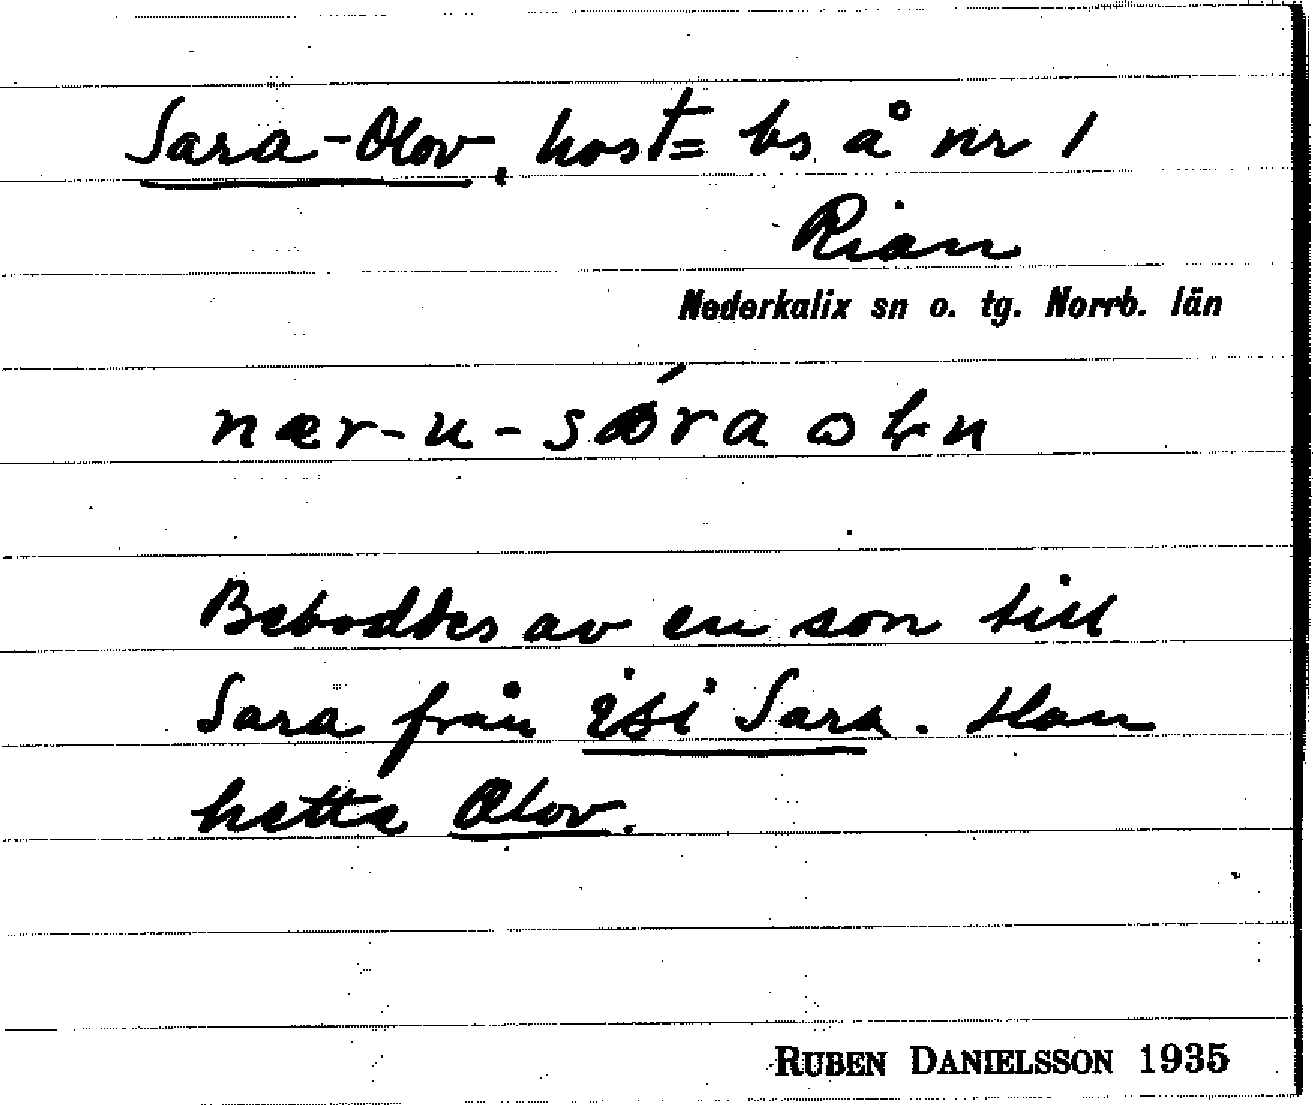 Sara-Olov, host= bs. å nr 1
Rian
Nederkalix sn o. tg. Norrb. län
nær-u-
Beboddes av en son till
Sara från isi Sara. Han
hette Olov.
RUBEN DANIELSSON 1935